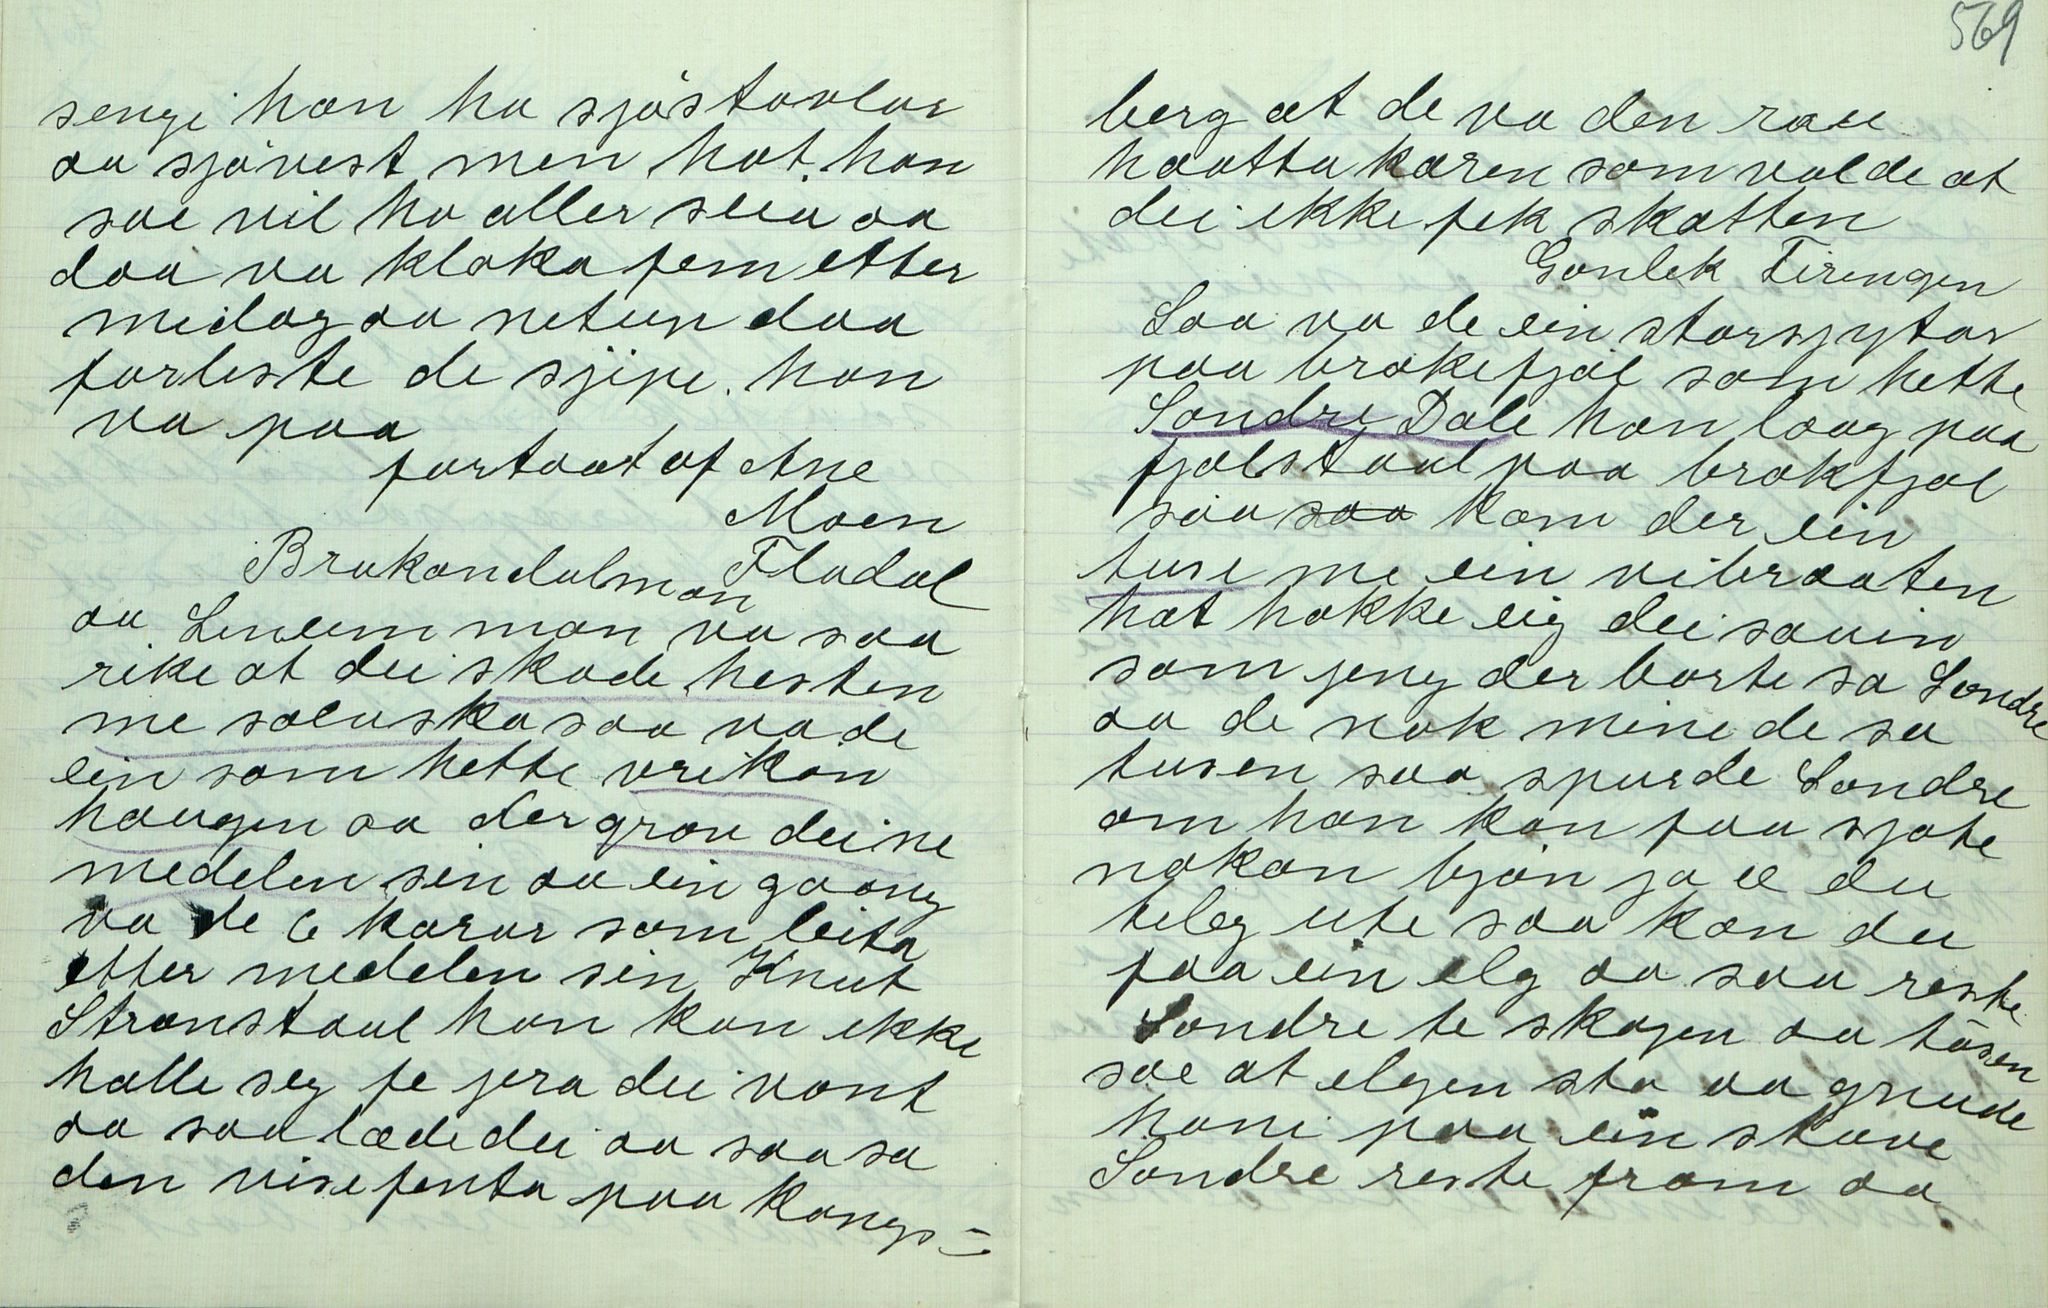 sengi han ha sjøstøvlar
aa sjøvest men hat han
sae vil ha aller seia aa
daa va kloka fem etter
midag aa netup daa
forleste de sjipe han
va paa
fortaat af Ane
Moen
Flødal
Brokandalman
aa Lineim man va saa
rike at dei skode hesten
me sølvska saa va de
ein som hette vrikan
haugen aa der grov dei ne
medelen sin aa ein gaang
va de 6 karar som leita
etter medelen sin Knut
Stranstaul han kan ikke
halle seg fe jera dei vont
aa saa lædedei aa saa sa
den vise fenta paa Kongs=
569
berg at de va den rau
haatta karen som valde at
dei ikke fek skatten
Gonlek Tirengen
Saa va de ein storsjytar
paa brokefjøl som hette
Sondre Dale han laag paa
fjølstaul paa brokfjøl
saa saa kom der ein
tuse me ein vibraaten
hat hokke eig dei sauin
som jeng der borte sa Sondre
aa de nok mine de sa
tusen saa spurde Sondre
om han kan faa sjote
nokon bjøn ja æ du
teleg ute saa kan du
faa ein elg aa saa reste
Sondre te skogen aa tøsen
sae at elgen sto aa gnude
honi paa ein stuve
Sondre reste fram aa